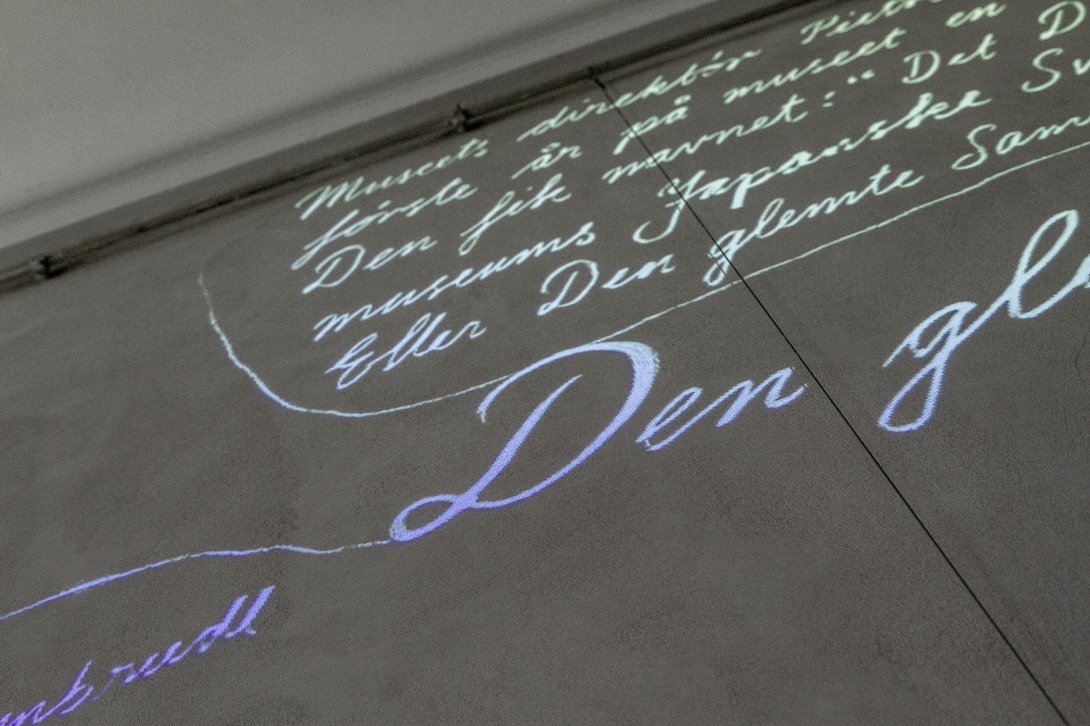 Museets direktør Pietr
første år på museet en
Den fik navnet: "Det D
museums Japanske Sv
Eller Den glemte Sam
Den gl